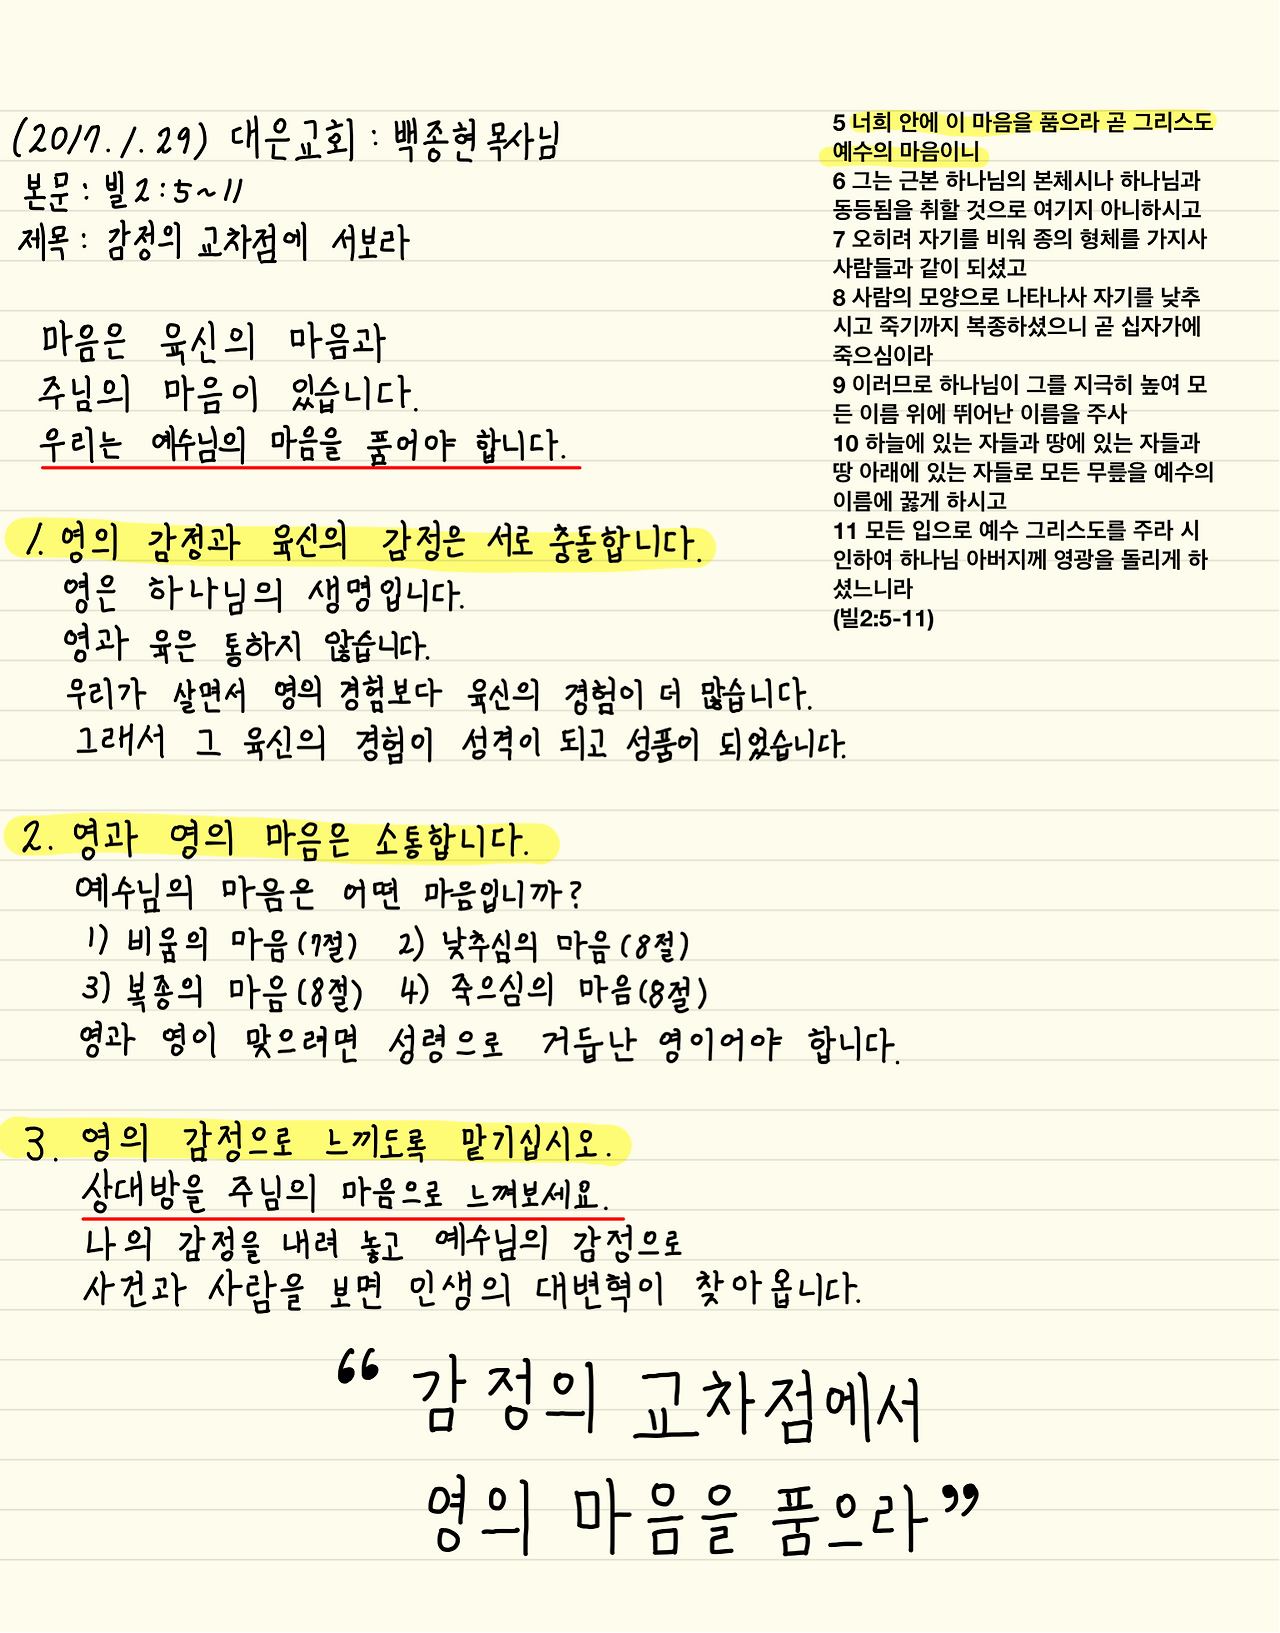 (2017.1.29) 대은교회 : 백종현목사님
본문 : 빌2:5~11
제목 : 감정의 교차점에 서보라
마음은 육신의 마음과
주님의 마음이 있습니다.
우리는 예수님의 마음을 품어야 합니다.
1. 영의 감정과 육신의 감정은 서로 충돌합니다.
영은 하나님의 생명입니다.
영과 육은 통하지 않습니다.
우리가 살면서 영의 경험보다 육신의 경험이 더 많습니다.
그래서 그 육신의 경험이 성격이 되고 성품이 되었습니다.
2. 영과 영의 마음은 소통합니다.
예수님의 마음은 어떤 마음입니까?
1) 비움의 마음(7절) 2) 낮추심의 마음(8절)
3) 복종의 마음(8절) 4) 죽으심의 마음(8절)
영과 영이 맞으려면 성령으로 거듭난 영이어야 합니다.
3. 영의 감정으로 느끼도록 맡기십시오.
상대방을 주님의 마음으로 느껴보세요.
나의 감정을 내려 놓고 예수님의 감정으로
사건과 사람을 보면 인생의 대변혁이 찾아옵니다.
“감정의 교차점에서
영의 마음을 품으라”
5 너희 안에 이 마음을 품으라 곧 그리스도
예수의 마음이니
6 그는 근본 하나님의 본체시나 하나님과
동등됨을 취할 것으로 여기지 아니하시고
7 오히려 자기를 비워 종의 형체를 가지사
사람들과 같이 되셨고
8 사람의 모양으로 나타나사 자기를 낮추
시고 죽기까지 복종하셨으니 곧 십자가에
죽으심이라
9 이러므로 하나님이 그를 지극히 높여 모
든 이름 위에 뛰어난 이름을 주사
10 하늘에 있는 자들과 땅에 있는 자들과
땅 아래에 있는 자들로 모든 무릎을 예수의
이름에 꿇게 하시고
11 모든 입으로 예수 그리스도를 주라 시
인하여 하나님 아버지께 영광을 돌리게 하
셨느니라
(빌2:5-11)